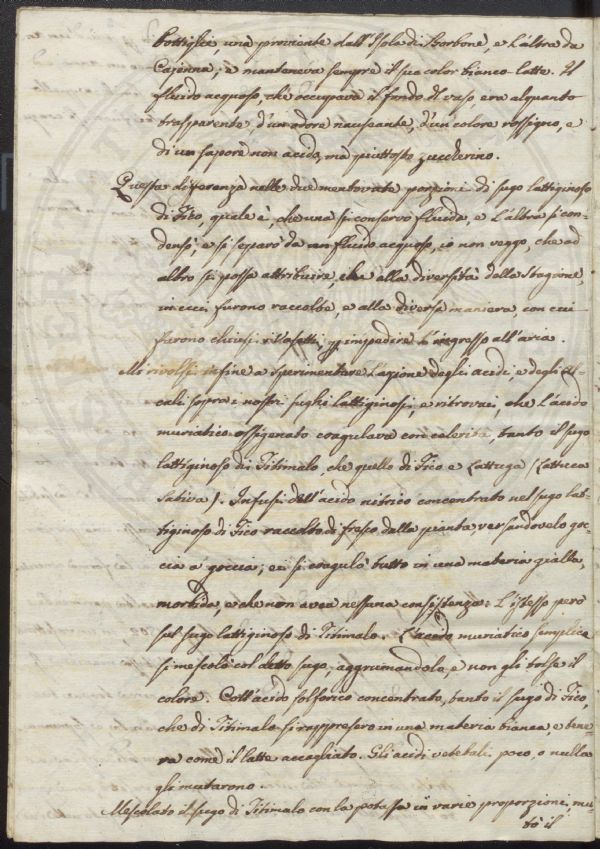 bottiglie, una proviente dall'Isola di Borbone, e l'altra da
Cajenna; e manteneva sempre il suo color bianco-latte. Il
fluido acquoso, che occupava il fondo del vaso era alquanto
trasparente d'un odore nauseante, d'un colore rossigno, e
di un sapore non acido, ma piuttosto zuccherino.
Questa diferenza nelle due mentovate porzioni di sugo lattiginoso
di Fico, quale è, che una si conservò fluida, e l'altra si con-
densò, e si separò da un fluido acquoso, io non veggo, che ad
altro si possa attribuire, che alla diversità della Stagione,
in cui furono raccolte, e alla diversa maniera, con cui
furono chiusi i vasetti, impedire l'ingresso all'aria.
Mi rivolsi infine a sperimentare l'azione degli acidi, e degli al-
cali sopra i nostri sughi lattiginosi, e ritrovai, che l'acido
muriatico ossigenato coagulava con celerità, tanto il sugo
lattiginoso di Titimalo, che quello di Fico e Lattuga (Lattuca
Sativa). Infusi dell'acido nitrico concentrato nel sugo lat-
tiginoso di Fico raccolto di fresco dalla pianta, versandovelo goc-
cia a goccia; ei si coagulò tutto in una materia gialla,
morbida, e che non avea nessuna consistenza: L'istesso però
sul sugo lattiginoso di Titimalo. L'acido muriatico semplice
si mescolò col detto sugo, aggrumandolo, e non gli tolse il
colore. Coll'acido solforico concentrato, tanto il sugo di Fico,
che di Titimalo si rappresero in una materia bianca, e tene-
ra come il latte accagliato. Gli acidi vetebali poco, o nulla
gli mutarono.
Mescolato il sugo di Titimalo con la potassa in varie proporzioni, mu-
tò il